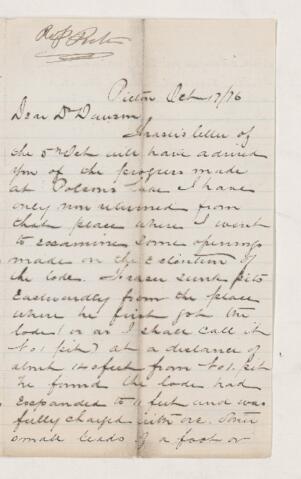 Pictou Oct 17/76
Dear Dr Dawson
Fraser's letter of
the 5th Oct will have advised
you of the progress made
at Polson's Lake I have
only now returned from
that place where I went
to examine some openings
made on the extention of
the lode. Fraser sunk pits
Eastwardly from the place
where he first got the
lode (or as I shall call it
No 1 pit) at a distance of
about 120 feet from No 1. pit
he found the lode had
expanded to 11 feet and was
fully charged with ore.
small leads of a foot or